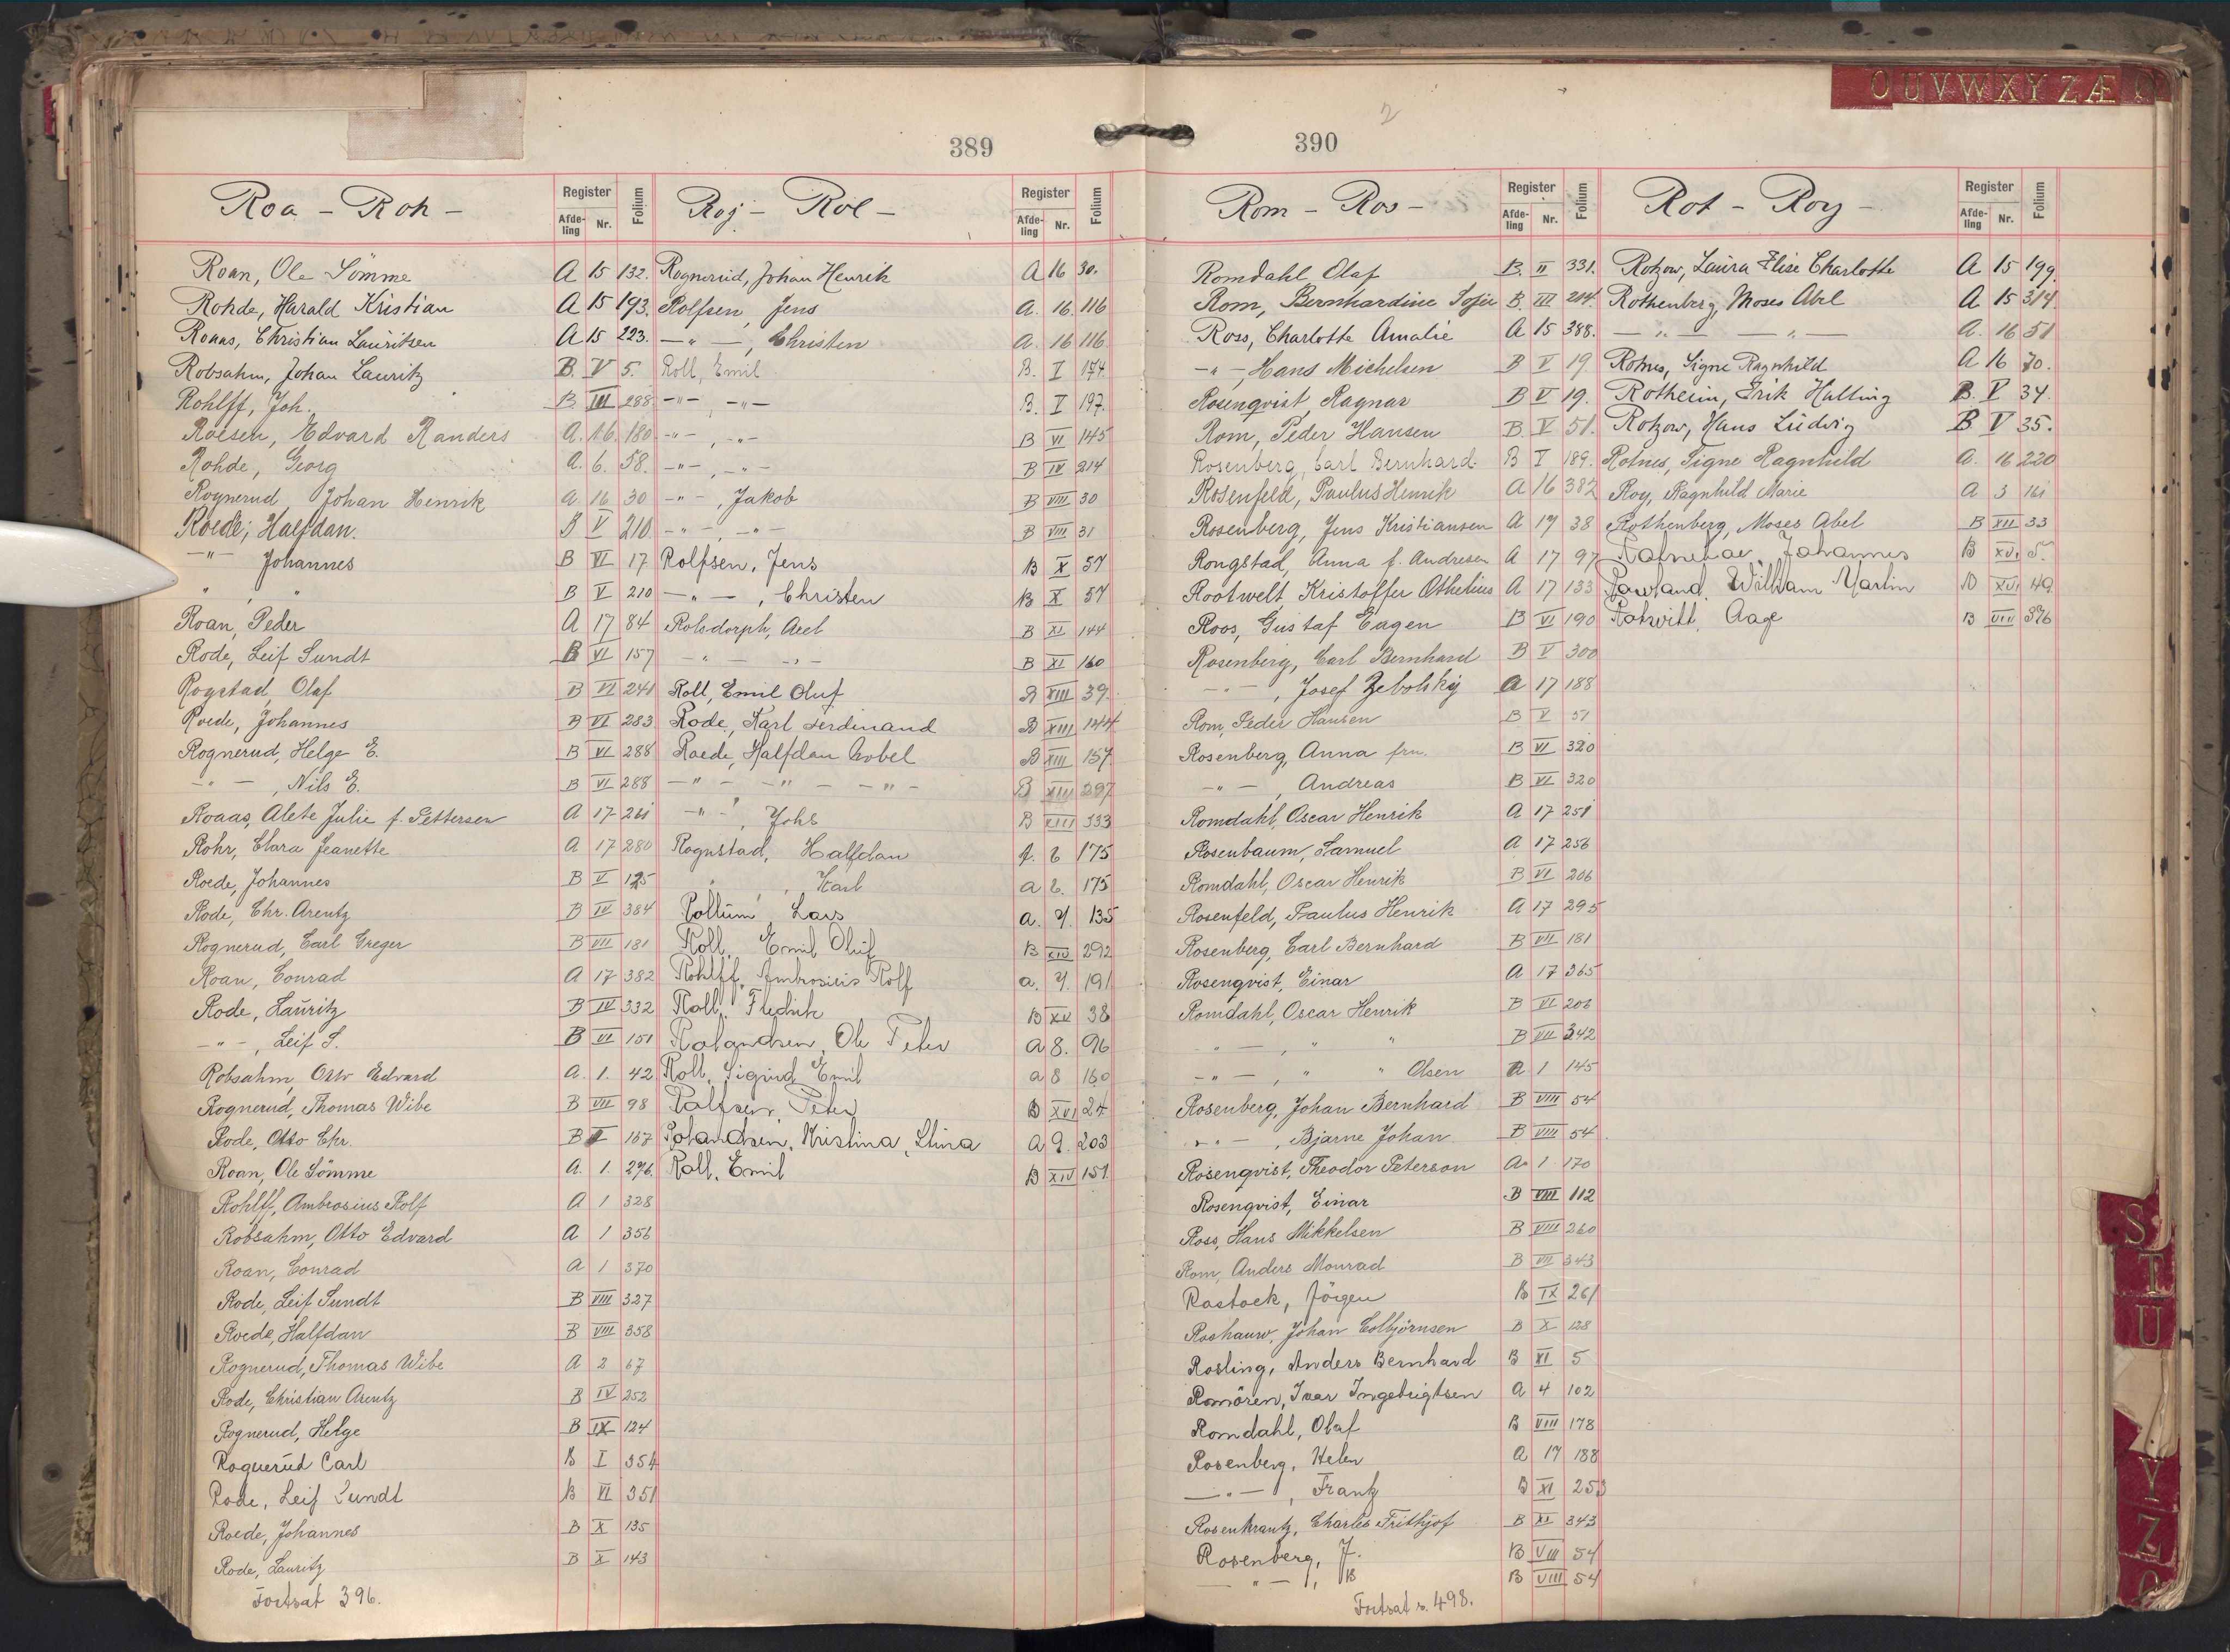 O U V W X Y Z Æ Ø
389
Roa - Roh -
Register
Afde-ling Nr. Folium
Roan, Ole Sömme A 15 132.
Rohde, Harald Kristian A 15 193.
Roaas, Christian Lauritsen A 15 223.
Robsahm, Johan Lauritz B. V 5.
Rohlff, Joh. B. III 288
Roesen, Edvard Randers A. 16. 180
Rohde, Georg A. 6. 58.
Rognerud, Johan Henrik A 16 30
Roede, Halfdan. B V 210
-"- Johannes B VI 17
" " B V 210
Roan, Peder A 17 84
Rode, Leif Sundt B VI 157
Rogstad, Olaf B VI 241
Roede, Johannes B VI 283
Rognerud, Helge E. B VI 288
-"-, Nils E. B VI 288
Roaas, Alete Julie f. Pettersen A 17 261
Rohr, Clara Jeanette A 17 280
Roede, Johannes B V 125
Rode, Chr. Arentz B IV 384
Rognerud, Carl Greger B VII 181
Roan, Conrad A 17 382
Rode, Lauritz B IV 332
-"-, Leif S. B VI 151
Robsahm, Otto Edvard A. 1. 42
Rognerud, Thomas Wibe B VII 98
Rode, Otto Chr. B V 167
Roan, Ole Sömme A. 1. 296.
Rohlff, Ambrosius Rolf A 1 328
Robsahm, Otto Edvard A 1 356
Roan, Conrad A 1 370
Rode, Leif Sundt B VIII 327
Roede, Halfdan B VIII 358
Rognerud, Thomas Wibe A 2 67
Rode, Christian Arentz B IV 252
Rognerud, Helge B IX 124
Rognerud Carl B I 354
Rode, Leif Sundt B VI 351
Roede, Johannes B X 135
Rode, Lauritz B X 143
Fortsat 396.
Roj - Rol -
Register
Afde-ling Nr. Folium
Rognerud, Johan Henrik A 16 30.
Rolfsen, Jens A. 16. 116
-"-, Christen A. 16 116
Roll, Emil B. I 174
-"-, -"- B. I 197.
-"-, -"- B VI 145
-"-, -"- B IV 214
-"-, Jakob B VIII 30
-"-, -"- B VIII 31
Rolfsen, Jens B X 57
-"-, Christen B X 57
Rolsdorph, Axel B XI 144
-"- -"- B XI 160
Roll, Emil Oluf B XIII 39.
Rode, Karl Ferdinand B XIII 144
Roede, Halfdan Nobel B XIII 157
-"- -"- -"- B XIII 297
-"-, Johs B XIII 333
Rognstad, Halfdan A. 6 175
", Karl A 6. 175
Rollum, Lars A. 7. 135
Roll, Emil Oluf B XIV 292
Rohlff, Ambrosius Rolf A. 7. 191
Roll, Fredrik B XV 38
Rolandsen, Ole Peter A 8. 96
Roll, Sigurd Emil A 8 160
Rolfsen, Peter B XVI 24
Rolandsen, Kristina, Stina A 9. 203
Roll, Emil B XIV 151.
390
2
Rom - Ros -
Register
Afde-ling Nr. Folium
Romdahl Olaf B. II 331.
Rom, Bernhardine Sofie B. III 214.
Ross, Charlotte Amalie A 15 388.
-"-, Hans Michelsen B V 19
Rosenqvist, Ragnar B V 19.
Rom, Peder Hansen B. V 51.
Rosenberg, Carl Bernhard B I 189.
Rosenfeld, Paulus Henrik A 16 382
Rosenberg, Jens Kristiansen A 17 38
Rongstad, Anna f. Andresen A 17 97
Rootwelt Kristoffer Othelius A 17 133
Roos, Gustaf Eugen B VI 190
Rosenberg, Carl Bernhard B V 300
-"-, Josef Zebolsky A 17 188
Rom, Peder Hansen B V 51
Rosenberg, Anna fru. B VI 320
-"-, Andreas B VI 320
Romdahl, Oscar Henrik A 17 251
Rosenbaum, Samuel A 17 256
Romdahl, Oscar Henrik B VI 206
Rosenfeld, Paulus Henrik A 17 295
Rosenberg, Carl Bernhard B VII 181
Rosenqvist, Einar A 17 365
Romdahl, Oscar Henrik B VI 206
-"-, " " B VII 342
-"-, " " Olsen A 1 145
Rosenberg, Johan Bernhard B VIII 54
-"-, Bjarne Johan B VIII 54
Rosenqvist, Theodor Peterson A. 1 170
Rosenqvist, Einar B VIII 112
Ross, Hans Mikkelsen B VIII 260
Rom, Anders Monrad B VII 343
Rostock, Jörgen B IX 261
Roshauw, Johan Colbjörnsen B X 128
Rosling, Anders Bernhard B XI 5
Romören, Ivar Ingebrigtsen A 4 102
Romdahl, Olaf B VIII 178
Rosenberg, Helen A 17 188
-"-, Frantz B XI 253
Rosenkrantz, Charles Frithjof B XI 343
Rosenberg, J. B VIII 54
-"-, B B VIII 54
Fortsat s. 498.
Rot - Roy -
Register
Afde-ling Nr. Folium
Rotzow, Laura Elise Charlotte A 15 199.
Rothenberg, Moses Abel A 15 314.
-"- -"- A. 16 51
Rotnes, Signe Ragnhild A 16 70.
Rotheim, Erik Halling B. V 34.
Rotzow, Hans Ludvig B V 35.
Rotnes, Signe Ragnhild A. 16 220
Roy, Ragnhild Marie A 3 161
Rothenberg, Moses Abel B XII 33
Johannes B XVI 5.
Rowland, William Martin B XVI 49
Rotwitt, Aage B VIII 396
S
T
U
Y
Z